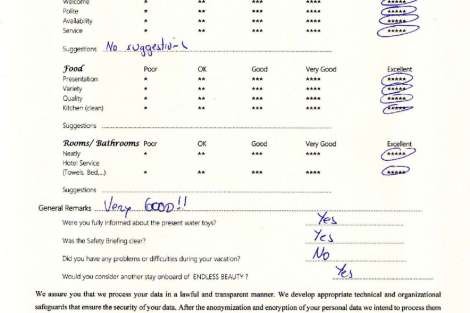 Welcome * ** *** **** *****
Polite * ** *** **** *****
Availability * ** *** **** *****
Service * ** *** **** *****
Suggestions No suggestions
Food Poor OK Good Very Good Excellent
Presentation * ** *** **** *****
Variety * ** *** **** *****
Quality * ** *** **** *****
Kitchen (clean) * ** *** **** *****
Suggestions
Rooms/ Bathrooms Poor OK Good Very Good Excellent
Neatly * ** *** **** *****
Hotel Service
(Towels, Bed,...) * ** *** **** *****
Suggestions
General Remarks Very GOOD!!
Were you fully informed about the present water toys? Yes
Was the Safety Briefing clear? Yes
Did you have any problems or difficulties during your vacation? No
Would you consider another stay onboard of ENDLESS BEAUTY ? Yes
We assure you that we process your data in a lawful and transparent manner. We develop appropriate technical and organizational
safeguards that ensure the security of your data. After the anonymization and encryption of your personal data we intend to process them